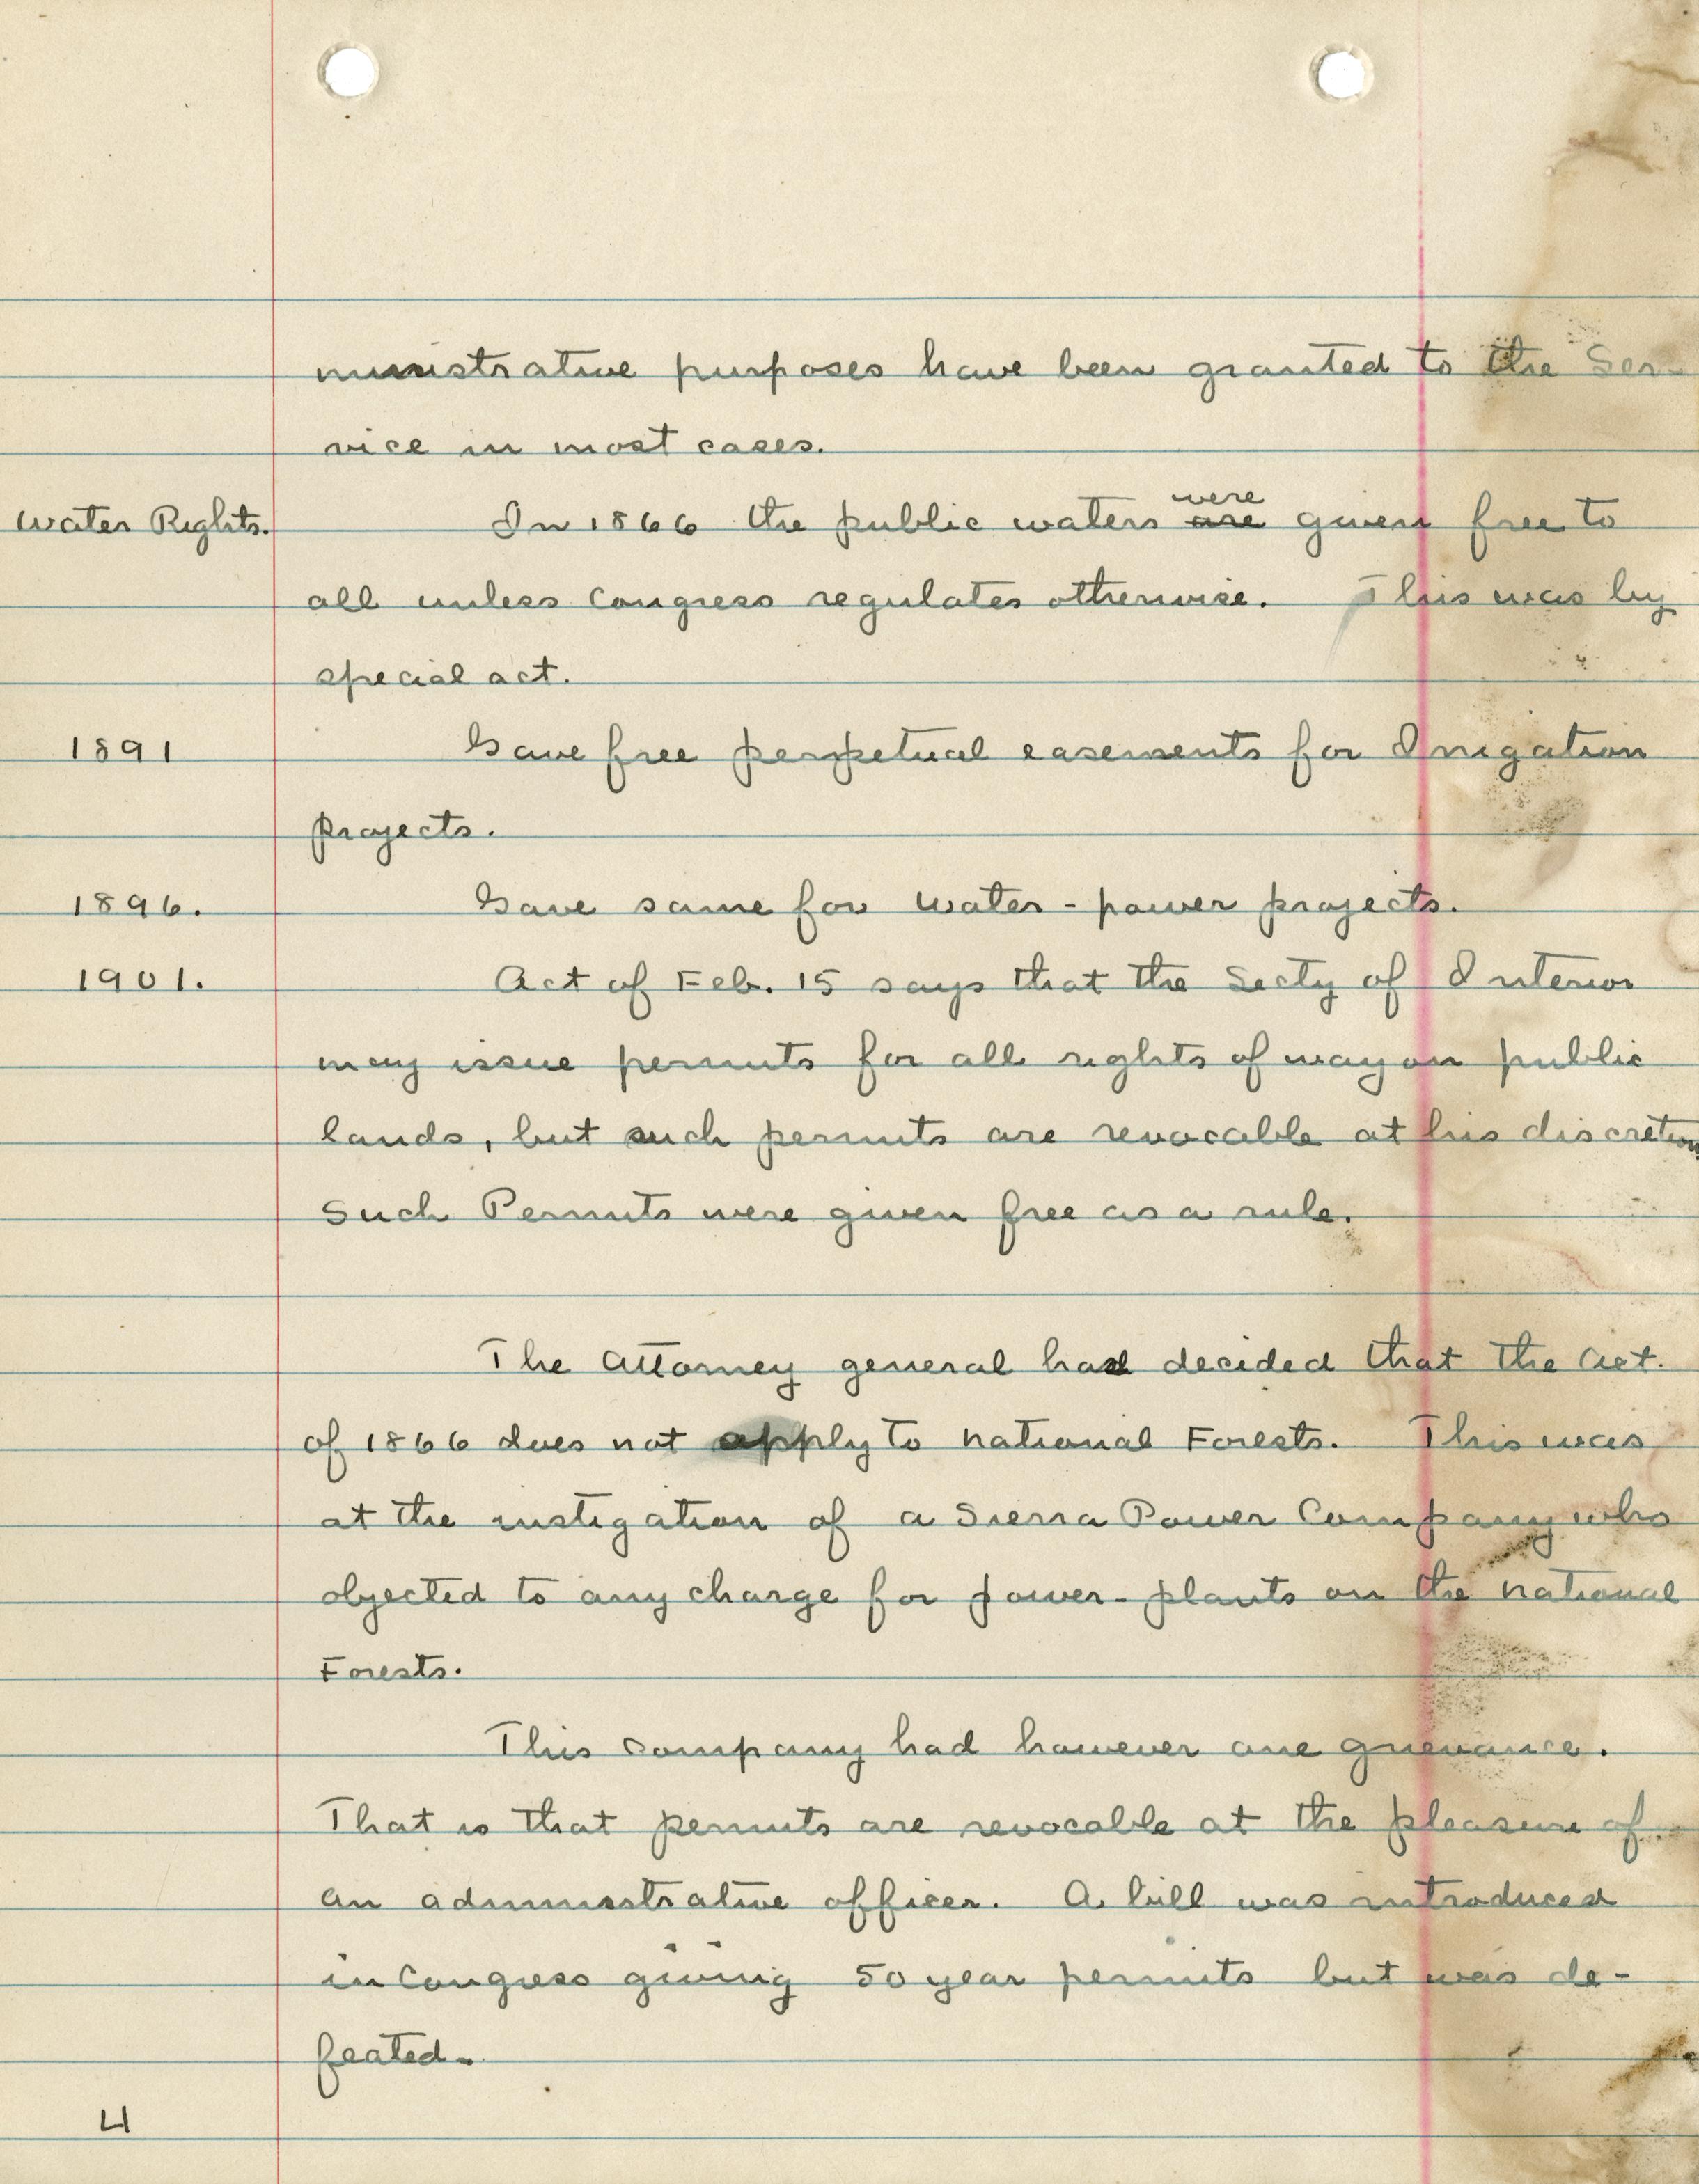 ministrative purposes have been granted to the Ser-
vice in most cases.
were
Water Rights. In 1866 the public waters are given free to
all unless Congress regulates otherwise. This was by
special act.
1891 Gave free perpetual easements for Irrigation
projects.
1896. Gave same for water-power projects.
1901. Act of Feb. 15 says that the Secty of Interior
may issue permits for all rights of way on public
lands, but such permits are revocable at his discretion
Such Permits were given free as a rule.
The Attorney general had decided that the Act.
of 1866 does not apply to national Forests. This was
at the instigation of a Sierra Power Company who
objected to any charge for power-plants on the national
Forests.
This company had however one grievance.
That is that permits are revocable at the pleasure of
an administrative officer. A bill was introduced
in Congress giving 50 year permits but was de-
feated.
4